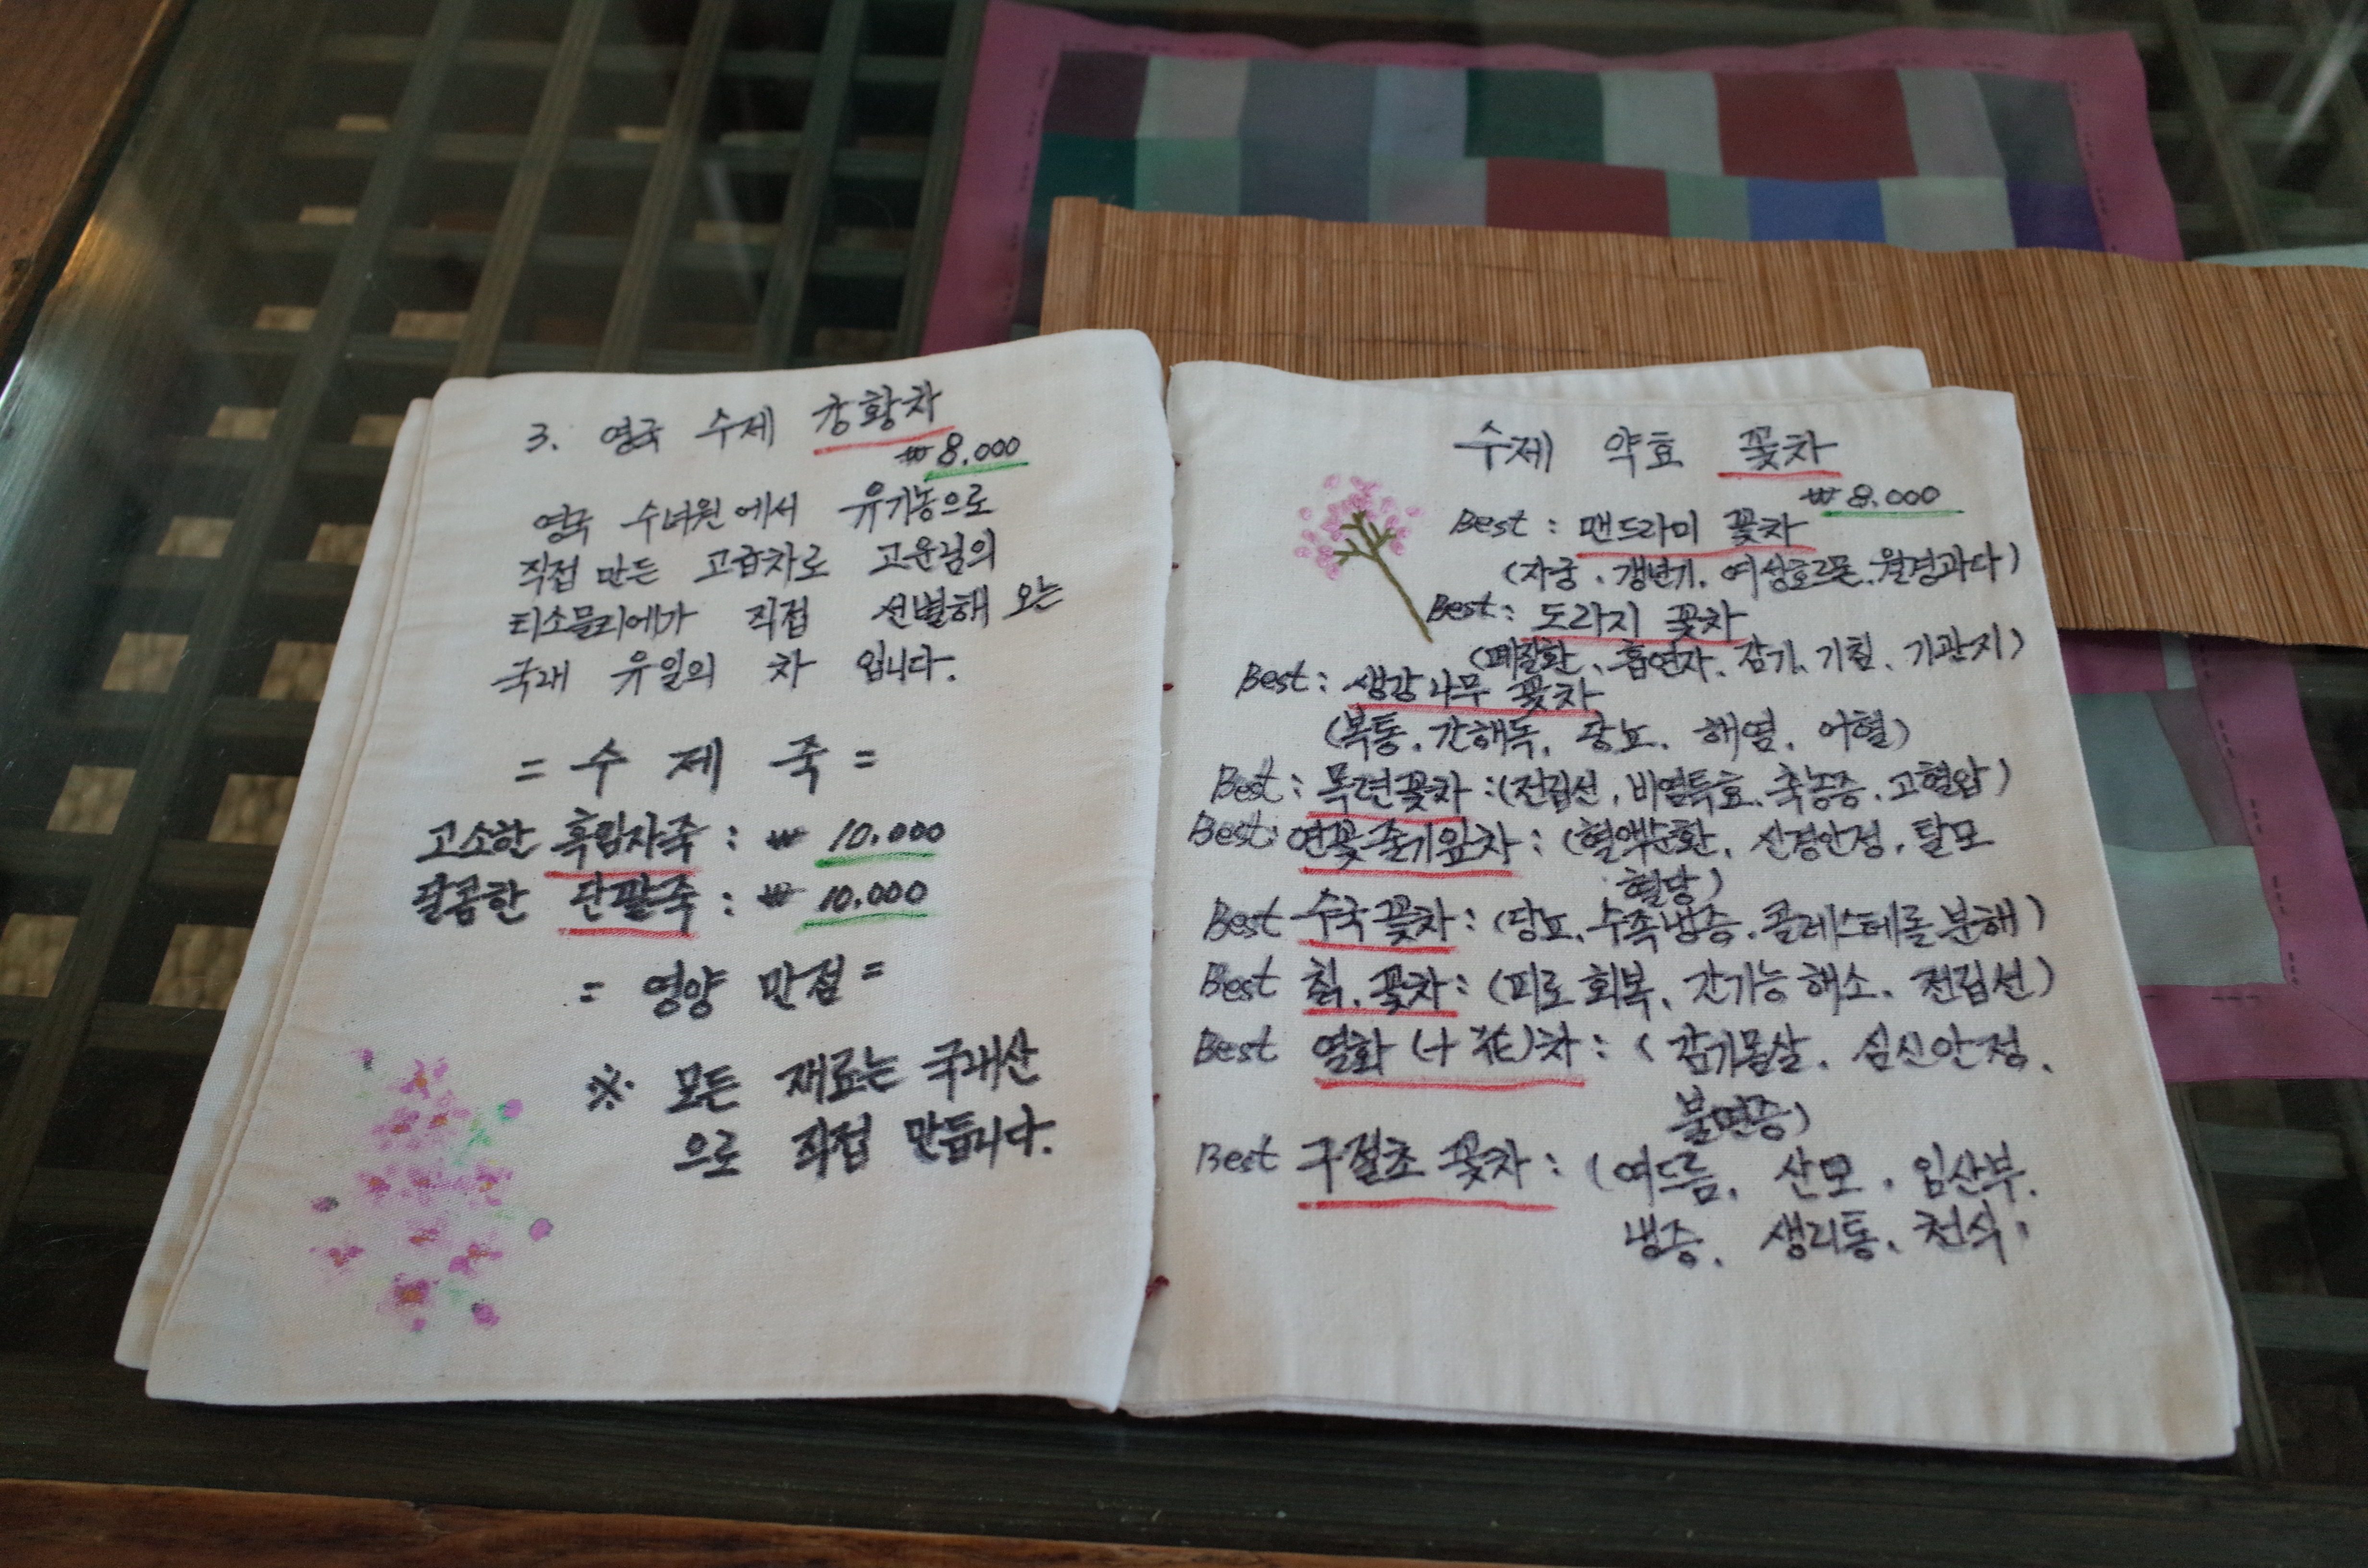 3. 영국 수제 강황차
₩8.000
영국 수녀원에서 유기농으로
직접 만든 고급차로 고운님의
티소믈리에가 직접 선별해 오는
국내 유일의 차 입니다.
= 수 제 죽 =
고소한 흑임자죽 : ₩ 10.000
달콤한 단팥죽 : ₩ 10.000
= 영양 만점 =
※ 모든 재료는 국내산
으로 직접 만듭니다.
수제 약효 꽃차
₩8.000
Best : 맨드라미 꽃차
(자궁. 갱년기. 여성호르몬. 월경과다)
Best : 도라지 꽃차
(폐질환. 흡연자. 감기. 기침. 기관지)
Best : 생강나무 꽃차
(복통. 간해독. 당뇨. 해열. 어혈)
Best : 목련꽃차 : (전립선. 비염특효. 축농증. 고혈압)
Best: 연꽃줄기잎차 : (혈액순환. 신경안정. 탈모
혈당)
Best 수국꽃차 : (당뇨. 수족냉증. 콜레스테롤 분해)
Best 칡. 꽃차 : (피로회복. 간기능 해소. 전립선)
Best 열화 (十 花)차 : ( 감기몸살. 심신안정.
불면증)
Best 구절초 꽃차 : (여드름. 산모. 임산부.
냉증. 생리통. 천식.